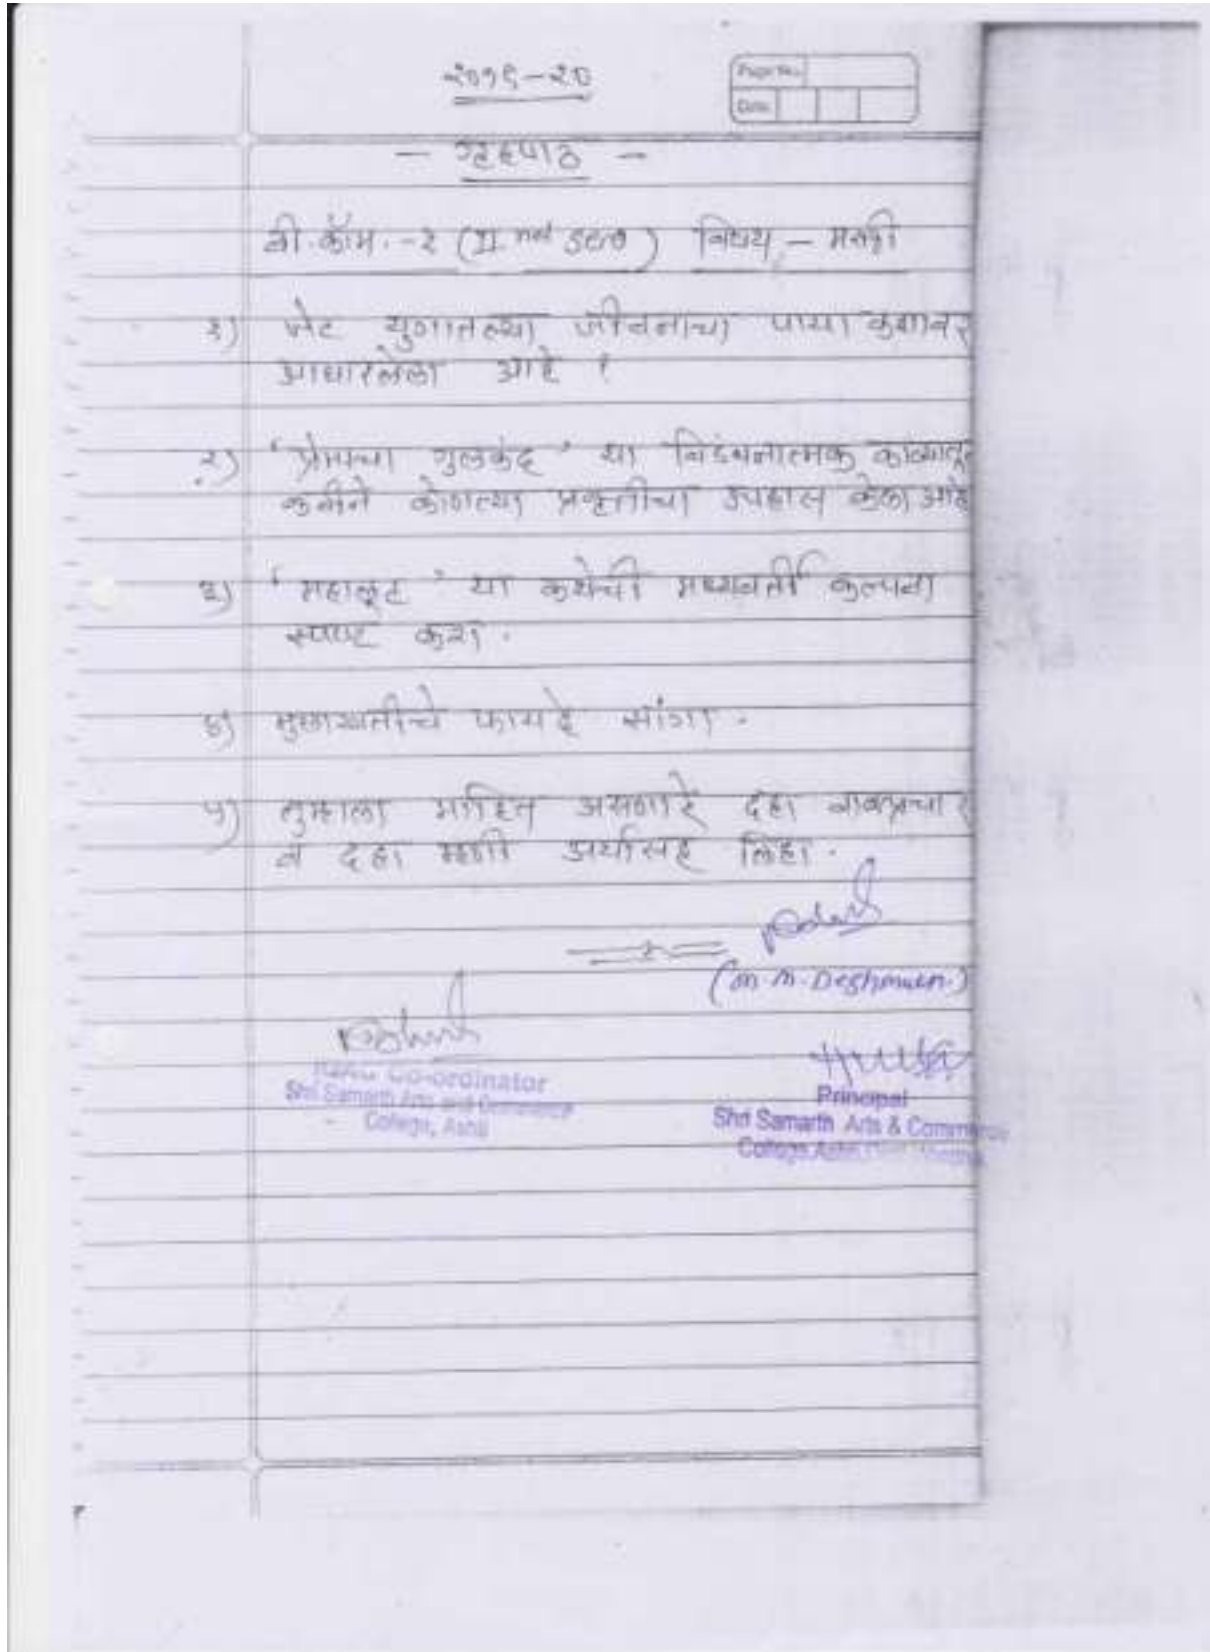 २०१९-२०
Page No.
Date
- गृहपाठ -
बी.कॉम.-२ (II nd sem) विषय - मराठी
१) जेट युगातल्या जीवनाचा पाया कुशावर
आधारलेला आहे ?
२) 'प्रेमाचा गुलकंद' या विडंबनात्मक काव्यातून
कवीने कोणत्या प्रवृत्तीचा उपहास केला आहे
३) 'महालूट' या कथेची मध्यवर्ती कल्पना
स्पष्ट करा.
४) मुलाखतीचे फायदे सांगा.
५) तुम्हाला माहित असणारे दहा वाक्प्रचार
व दहा म्हणी अर्थासह लिहा.
(M.M. Deshmukh.)
IQAC Co-ordinator
Shri Samarth Arts and Commerce
College, Ashti
Principal
Shri Samarth Arts & Commerce
College, Ashti